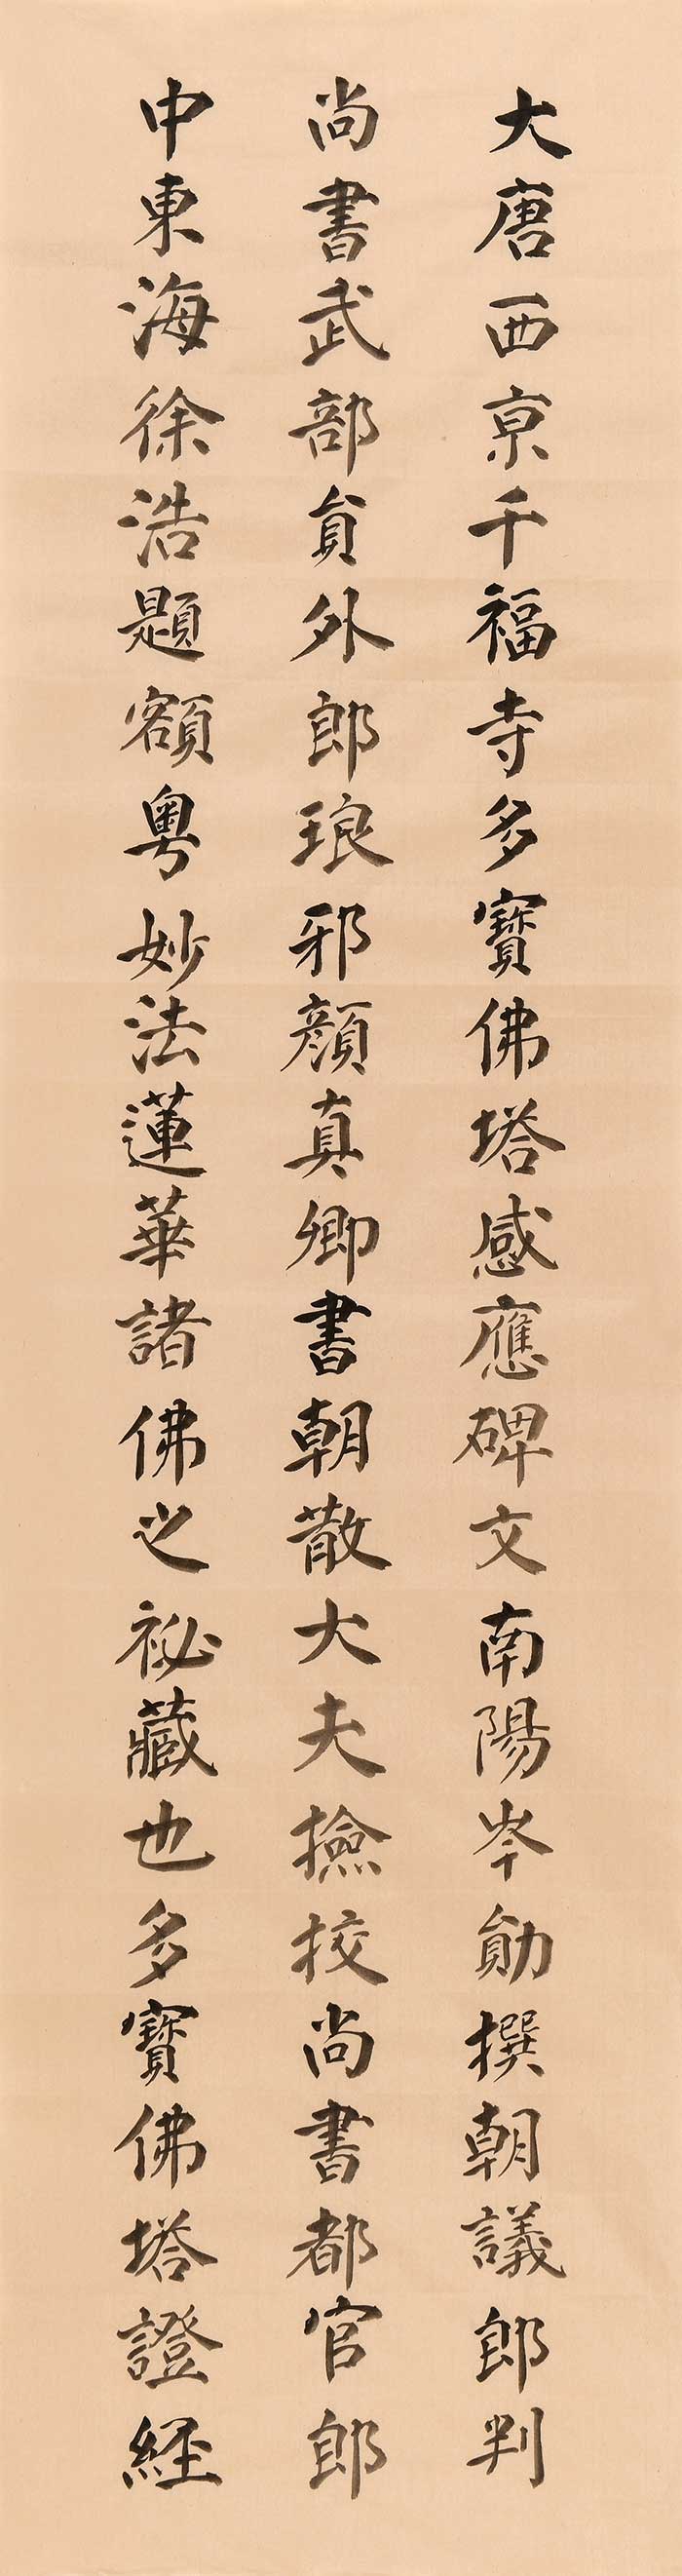 大唐西京千福寺多寶佛塔感應碑文南陽岑勛撰朝議郎判
尚書武部員外郎琅邪顏真卿書朝散大夫撿挍尚書都官郎
中東海徐浩題額粵妙法蓮華諸佛之祕藏也多寶佛塔證經